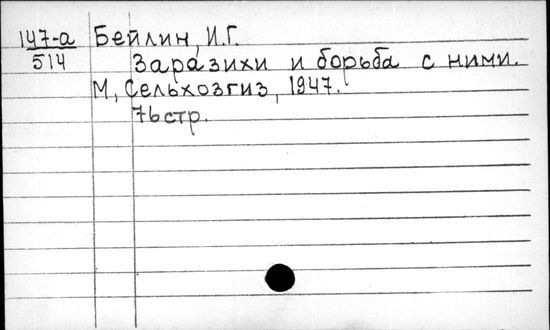 147-а Бейлин, И.Г.
514
Заразихи и борьба с ними.
М, Сельхозгиз, 1947.
76 стр.